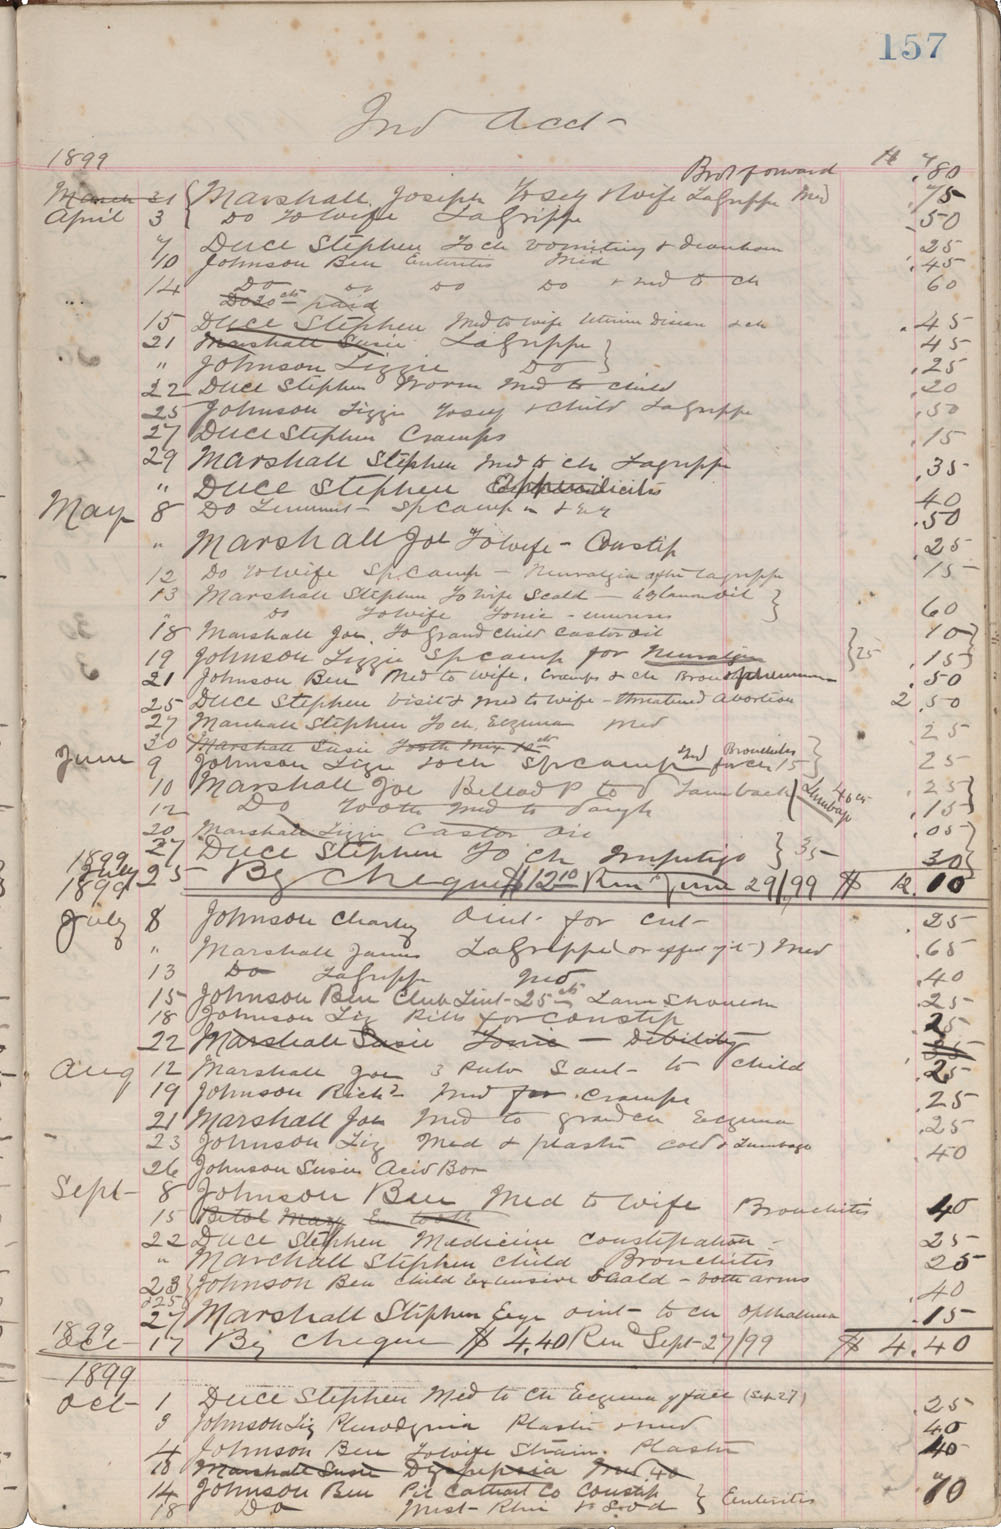 157
Ind Acct
1899 Brot forward $ .80
March 31 Marshall Joseph To self & wife LaGrippe Med .75
April 3 Do To wife LaGrippe .50
7 Duce Stephen To ch vomiting & diarrhoea .25
10 Johnson Ben Enteritis Med .45
14 Do Do Do Do & med to ch 60
Do 20 cts paid
15 Duce Stephen Med to wife Uterine disease & ch .45
21 Marshall Susie LaGrippe 45
" Johnson Lizzie Do .25
22 Duce Stephen Worm Med to child .20
25 Johnson Lizzie To self & child LaGrippe .50
27 Duce Stephen Cramps .15
29 Marshall Stephen Med to ch Lagrippe .35
" Duce Stephen Appendicitis 40
May 8 Do Liniment Sp Camp .50
" Marshall Joe To wife - Constip .25
12 Do To wife Sp Camp - Neuralgia after Lagrippe 15
13 Marshall Stephen To wife Scald -
" Do To wife Tonic - 60
18 Marshall Joe. To Grand child Castor oil 10
19 Johnson Lizzie Sp camp for Neuralgia 25 .15
21 Johnson Ben Med to wife. Cramps & ch .50
25 Duce Stephen Visit & Med to wife - threatened Abortion 2.50
27 Marshall Stephen To ch. Eczema Med 25
30 Marshall Susie Tooth Mix
June 9 Johnson Lizzie To ch Sp camp Med for ch 15 Bronchitis 25
10 Marshall Joe Bellad P to Lame back Lumbago 40 cts .25
12 Do Tooth Med to daugh .15
20 Marshall Lizzie Castor Oil .05
27 Duce Stephen To ch Impetigo 35 30
1899 July 1899 25 By Cheque $12.10 Ren June 29/99 $ 12.10
July 8 Johnson Charley Oint. for cut .25
" Marshall James LaGrippe (or effect of it) Med .65
13 Do LaGrippe Med .40
15 Johnson Ben Club Lint 25 cts Lame Shoulder .25
18 Johnson Liz Pills for Constip 25
22 Marshall Susie Tonic - Debility
Aug 12 Marshall Joe 3 Pulv Sant - to child .25
19 Johnson Richd Med for cramps .25
21 Marshall Joe Med to grandch Eczema .25
23 Johnson Liz Med & plaster cold & Lumbago .40
26 Johnson Susie Acid Bor
Sept 8 Johnson Ben Med to wife Bronchitis 40
15 Mary tooth
22 Duce Stephen Medicine constipation - 25
" Marshall Stephen child Bronchitis 25
23 & 25 Johnson Ben child Extensive Scald - both arms .40
27 Marshall Stephen Eye oint - to ch Opthalmia .15
1899 Oct 17 By cheque $ 4.40 Rend Sept 27/99 $ 4.40
1899
Oct 1 Duce Stephen Med to Ch Eczema of face (Sept 27) .25
3 Johnson Liz Pleurodynia Plaster & med 40
4 Johnson Ben To wife Strain. Plaster 40
10 Marshall Susie Dyspepsia Med 40
14 Johnson Ben Pil Cathart Co Constip
18 Do Mist - Rhei & Sod Enteritis 70